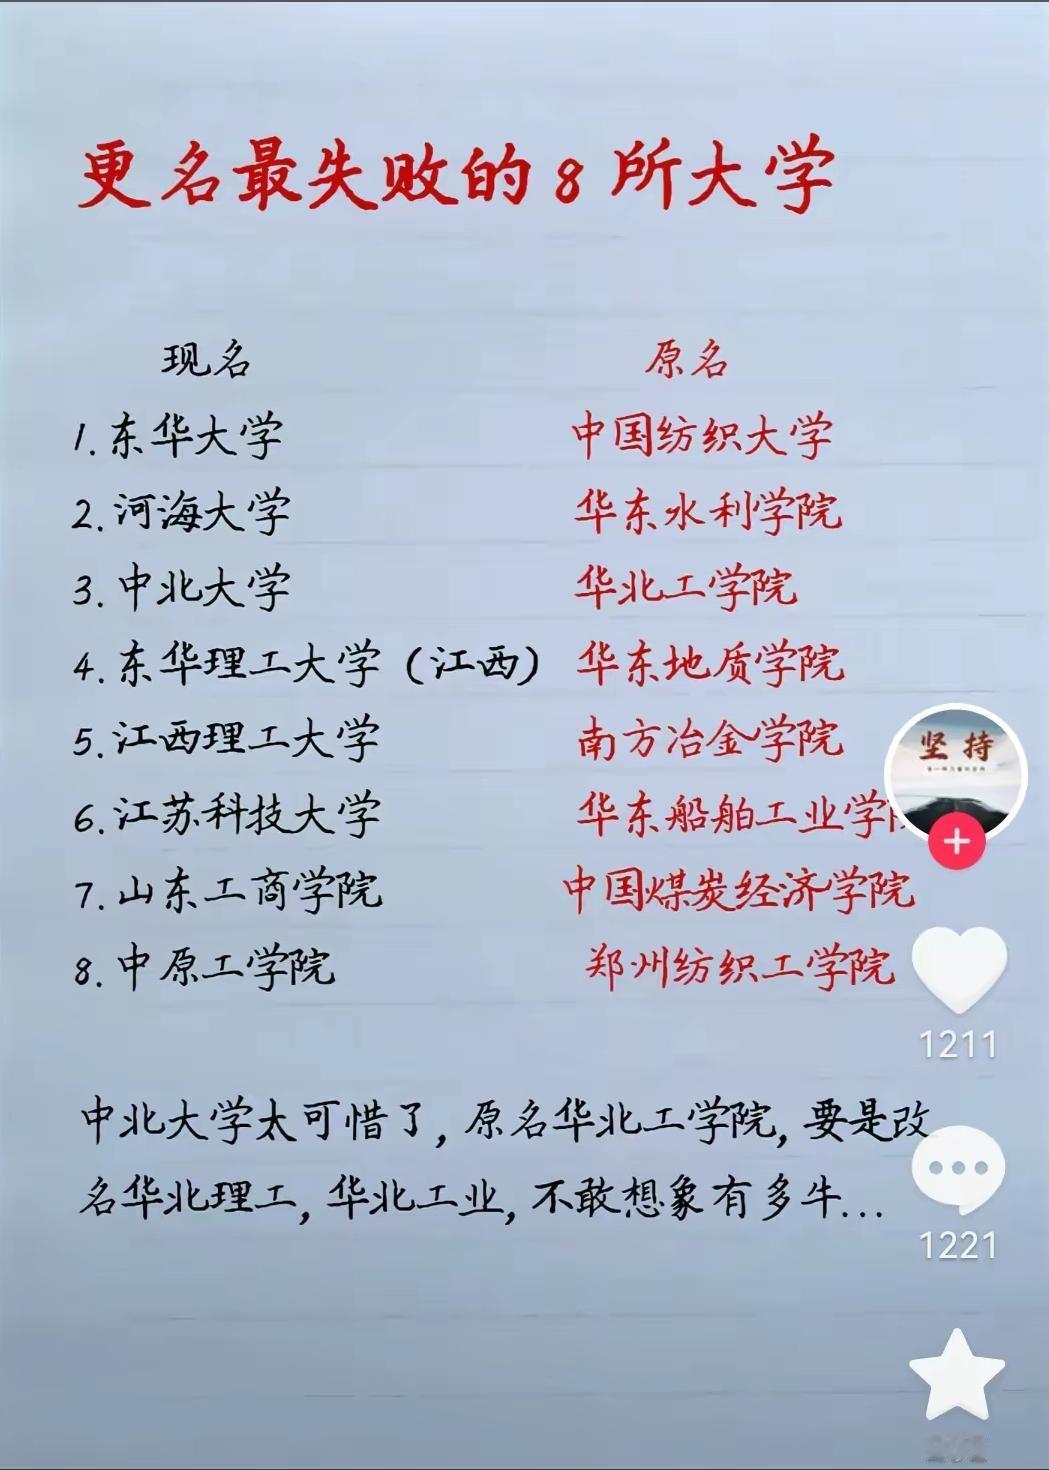 更名最失败的8所大学
现名 原名
1.东华大学 中国纺织大学
2.河海大学 华东水利学院
3.中北大学 华北工学院
4.东华理工大学（江西） 华东地质学院
5.江西理工大学 南方冶金学院
6.江苏科技大学 华东船舶工业学
7.山东工商学院 中国煤炭经济学院
8.中原工学院 郑州纺织工学院
中北大学太可惜了,原名华北工学院,要是改
名华北理工,华北工业,不敢想象有多牛...
坚持
1211
1221